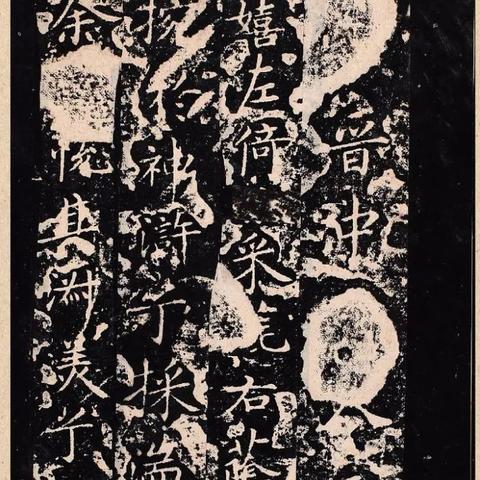 晉
嬉左倚采旄右蔭
捥於神滸兮採湍
余悅其淑美兮